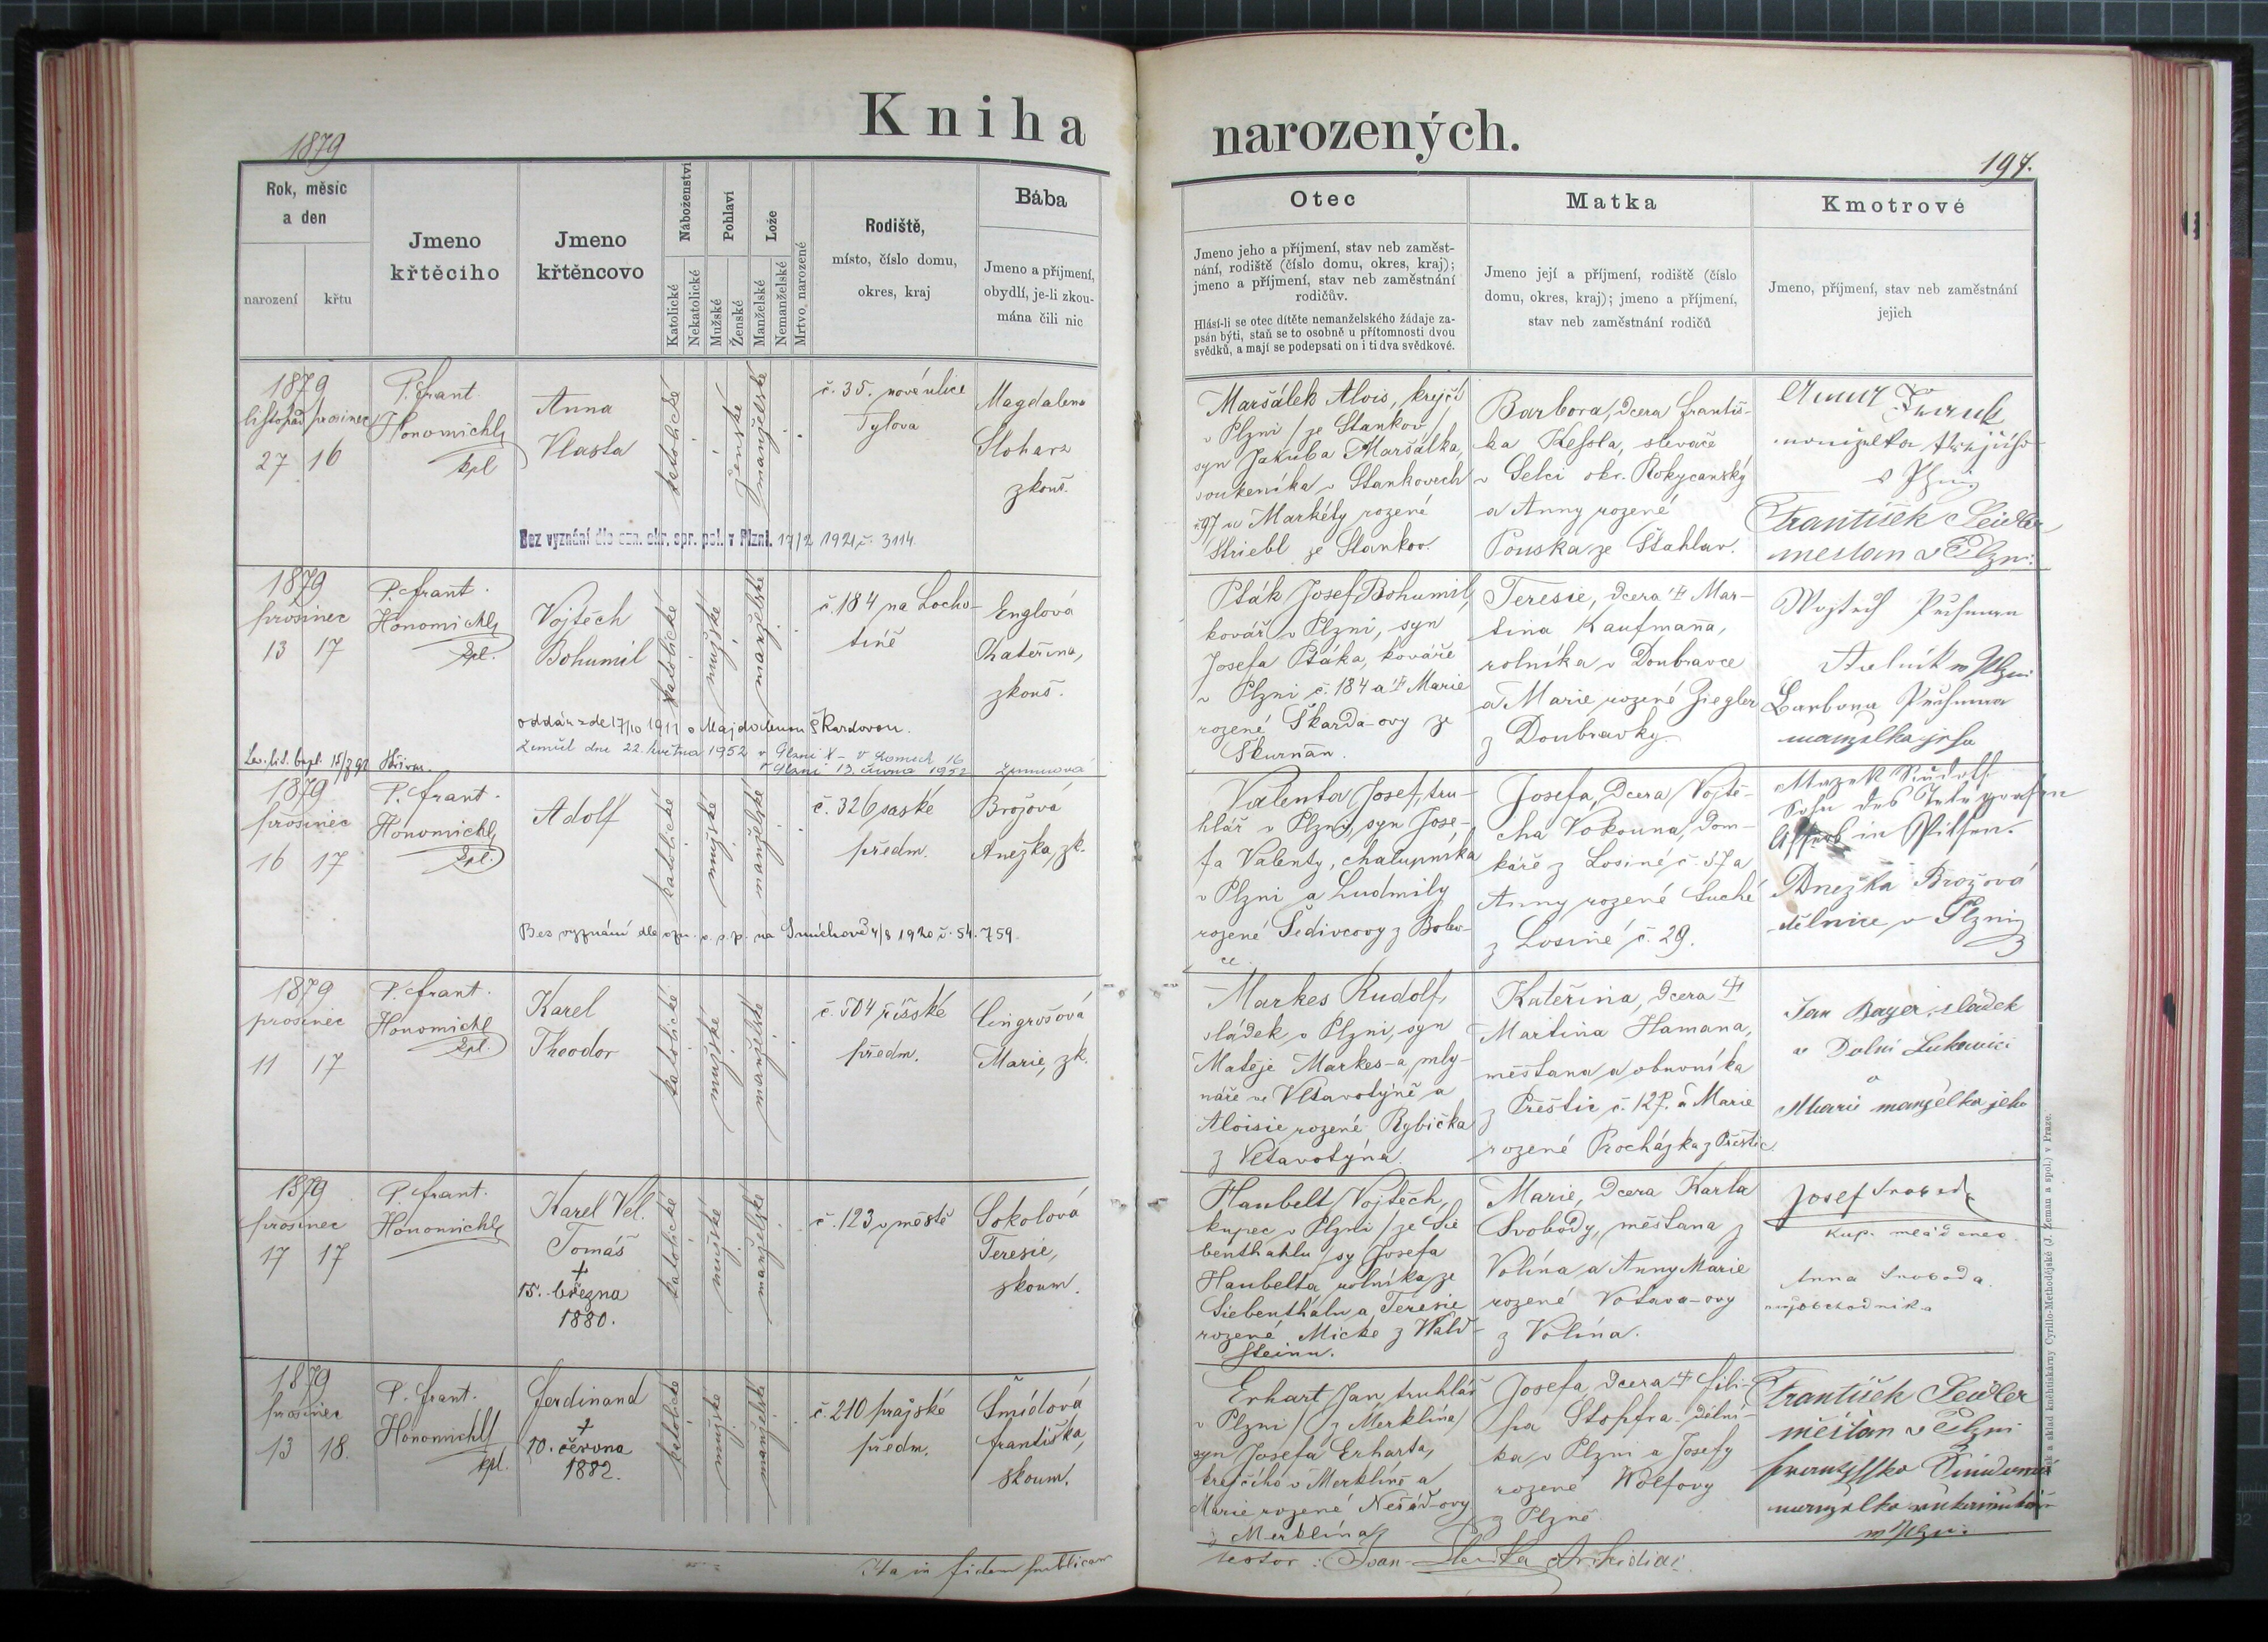 1879
Kniha narozených.
197.
Rok, měsíc
a den
narození
křtu
Jmeno
křtěcího
Jmeno
křtěncovo
Náboženství
Katolické
Nekatolické
Pohlaví
Mužské
Ženské
Lože
Manželské
Nemanželské
Mrtvo narozené
Rodiště,
místo, číslo domu,
okres, kraj
Bába
Jmeno a příjmení,
obydlí, je-li zkou-
mána čili nic
Otec
Jmeno jeho a příjmení, stav neb zaměst-
nání, rodiště (číslo domu, okres, kraj);
jmeno a příjmení, stav neb zaměstnání
rodičův.
Hlásí-li se otec dítěte nemanželského žádaje za-
psán býti, staň se to osobně u přítomnosti dvou
svědků, a mají se podepsati on i ti dva svědkové.
Matka
Jmeno její a příjmení, rodiště (číslo
domu, okres, kraj); jmeno a příjmení,
stav neb zaměstnání rodičů
Kmotrové
Jmeno, příjmení, stav neb zaměstnání
jejich
1879
listopad prosinec
27 16
P. Frant.
Honomichl
kpl
Anna
Vlasta
katolické
ženské
manželské
č. 35. nové ulice
Tylova
Magdalena
Stoharz
zkouš.
Bez vyznání dle ozn. okr. spr. pol. v Plzni. 17/2 1921 č. 3114
Maršálek Alois, krejčí
v Plzni / ze Stankov /
syn Jakuba Maršálka,
soukeníka v Stankovech
č. 97 a Markéty rozené
Striebl ze Stankov.
Barbora, dcera Františ-
ka Kesola, slevače
v Selci okr. Rokycanský
a Anny rozené
Pouska ze Štahlav.
Anna
František Seidler
mešťan v Plzni.
1879
prosinec
13 17
P. Frant.
Honomichl
kpl.
Vojtěch
Bohumil
katolické
mužské
manželské
č. 184 na Locho-
tíně
Englová
Kateřina,
zkouš.
oddán zde 17/10 1911 s Majdalenou Škardovou.
Zemřel dne 22. května 1952 v Plzni X - V Lomech 16
V Plzni 13. června 1952
Pták Josef Bohumil,
kovář v Plzni, syn
Josefa Ptáka, kováře
v Plzni č. 184 a † Marie
rozené Škarda-ovy ze
Skurňan.
Teresie, dcera † Mar-
tina Kaufmaña,
rolníka v Doubravce
a Marie rozené Ziegler
z Doubravky
Barbora
manželka jeho
1879
prosinec
16 17
P. Frant.
Honomichl
kpl.
Adolf
katolické
mužské
manželské
č. 326 saské
předm.
Brožová
Anežka, zk.
Bez vyznání dle ozn. o. s. p. na Smíchově 4/8 1920 č. 54.759.
Valenta Josef, tru-
hlář v Plzni, syn Jose-
fa Valenty, chalupníka
v Plzni a Ludmily
rozené Šedivcovy z Bolev-
ce.
Josefa, dcera Vojtě-
cha Vokouna, dom-
káře z Losiné č. 57 a
Anny rozené Suché
z Losiné č. 29.
Mazek Rudolf
Sohn des Telegrafen
in Pilsen.
Anežka Brožová
dělnice v Plzni
1879
prosinec
11 17
P. Frant.
Honomichl
kpl.
Karel
Theodor
katolické
mužské
manželské
č. 504 říšské
předm.
Cingrošová
Marie, zk.
Markes Rudolf,
sládek v Plzni, syn
Matěje Markes-a, mly-
náře ve Vltavotýně a
Aloisie rozené Rybička
z Vltavotýna.
Kateřina, dcera †
Martina Hamana,
měšťana a obuvníka
z Přeštic č. 127. a Marie
rozené Procházka z Přeštic.
Jan Bayer, sládek
v Dolní Lukavici
a
Marie manželka jeho
1879
prosinec
17 17
P. Frant.
Honomichl
Karel Vel.
Tomáš
†
15. března
1880.
katolické
mužské
manželské
č. 123 v městě
Sokolová
Teresie,
zkoum.
Haubelt Vojtěch,
kupec v Plzni / ze Sie
benthahlu / sy Josefa
Haubelta, rolníka ze
Siebenthalu a Teresie
rozené Micke z Wald-
steinu.
Marie, dcera Karla
Svobody, měšťana z
Volína a Anny Marie
rozené Votava-ovy
z Volína.
Josef Svoboda
kup. mládenec.
Anna Svoboda.
1879
prosinec
13 18.
P. Frant.
Honomichl
kpl.
Ferdinand
†
10. června
1882.
katolické
mužské
manželské
č. 210 pražské
předm.
Šmídlová
Františka,
zkoum.
Erhart Jan, truhlář
v Plzni / z Merklína /
syn Josefa Erharta,
krejčího v Merklíně a
Marie rozené Nešáď-ovy
z Merklína
Josefa, dcera † Fili-
pa Stopfra, dělní-
ka v Plzni a Josefy
rozené Wolfovy
z Plzně.
František Seidler
měšťan v Plzni
v Plzni.
Ita in fidem publicam
testor: Joan. Arhidiac.
Tisk a sklad knihtiskárny Cyrillo-Methodějské (J. Zeman a spol.) v Praze.